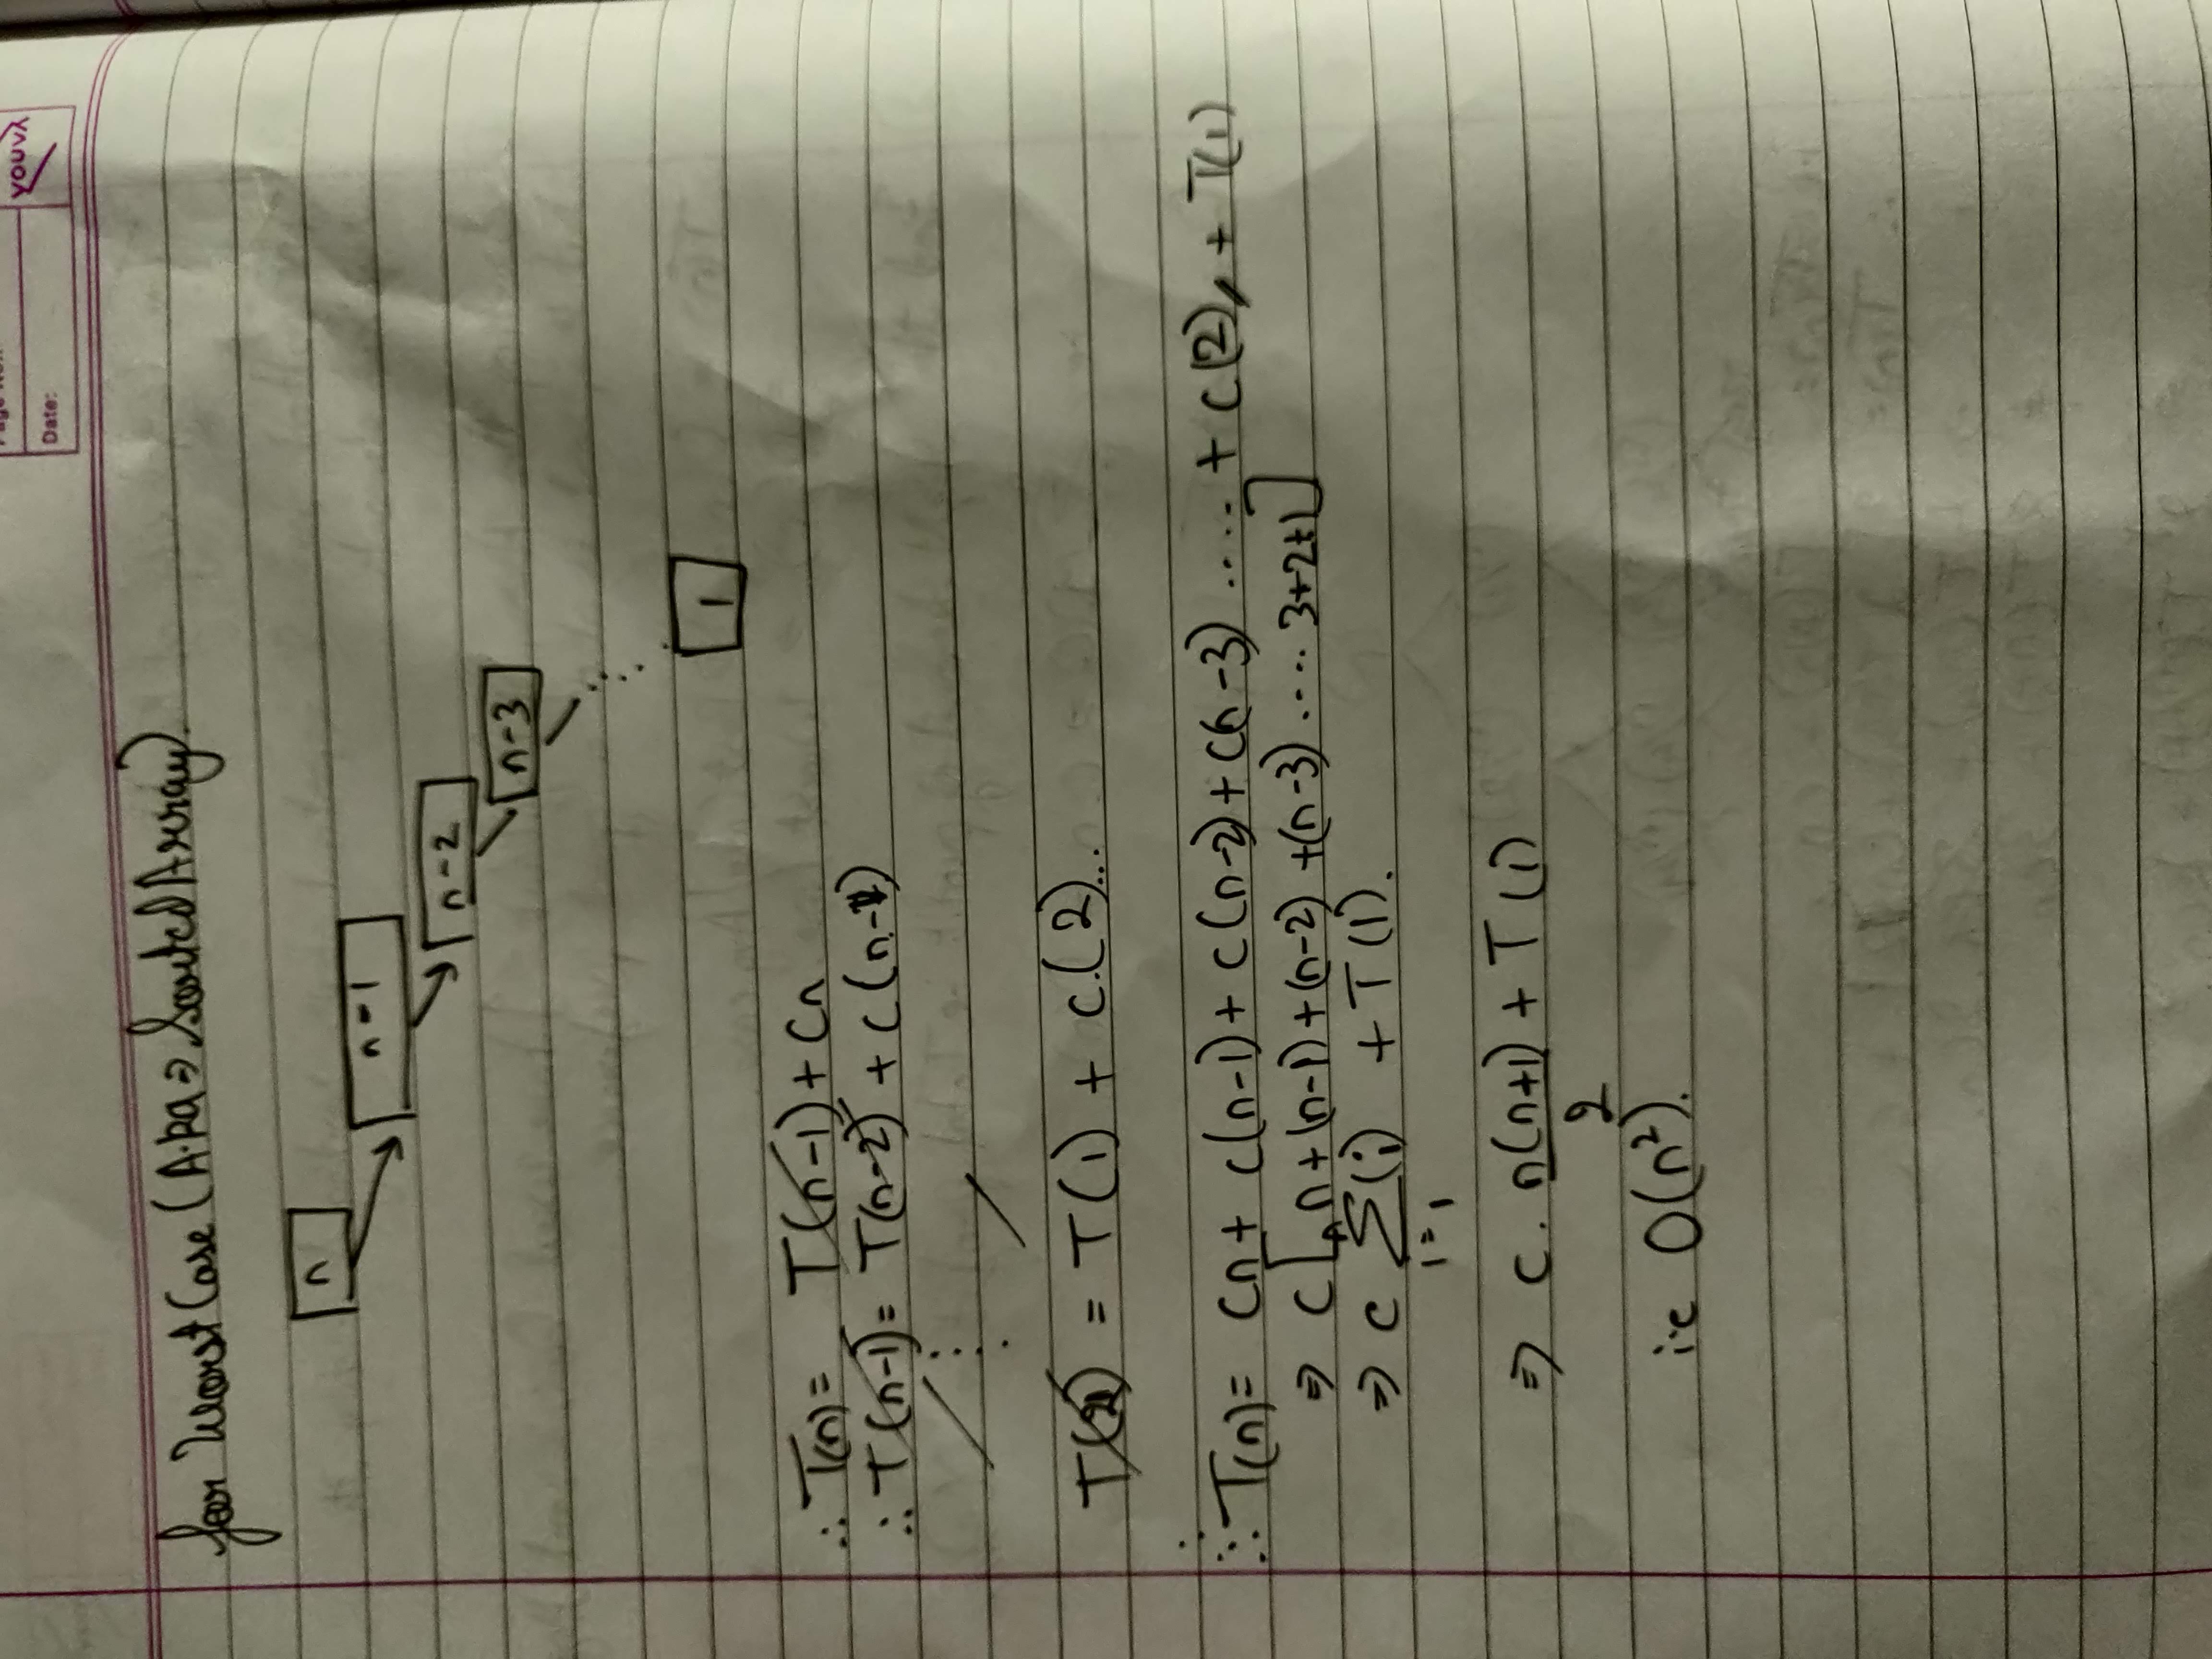 Page No.:
Date:
YOUVA
for Worst Case (A.ka ⇒ Sorted Array).
n
n-1
n-2
n-3
1
∴ T(n) = T(n-1) + Cn
∴ T(n-1) = T(n-2) + C(n-1)
T(2) = T(1) + C.(2)...
∴ T(n) = Cn + C(n-1) + C(n-2) + C(n-3) ..... + C(2) + T(1)
⇒ C[n + (n-1) + (n-2) + (n-3) .... 3+2+1]
⇒ C n∑i=1 (i) + T(1).
⇒ C. n(n+1)/2 + T(1)
i.e O(n²).